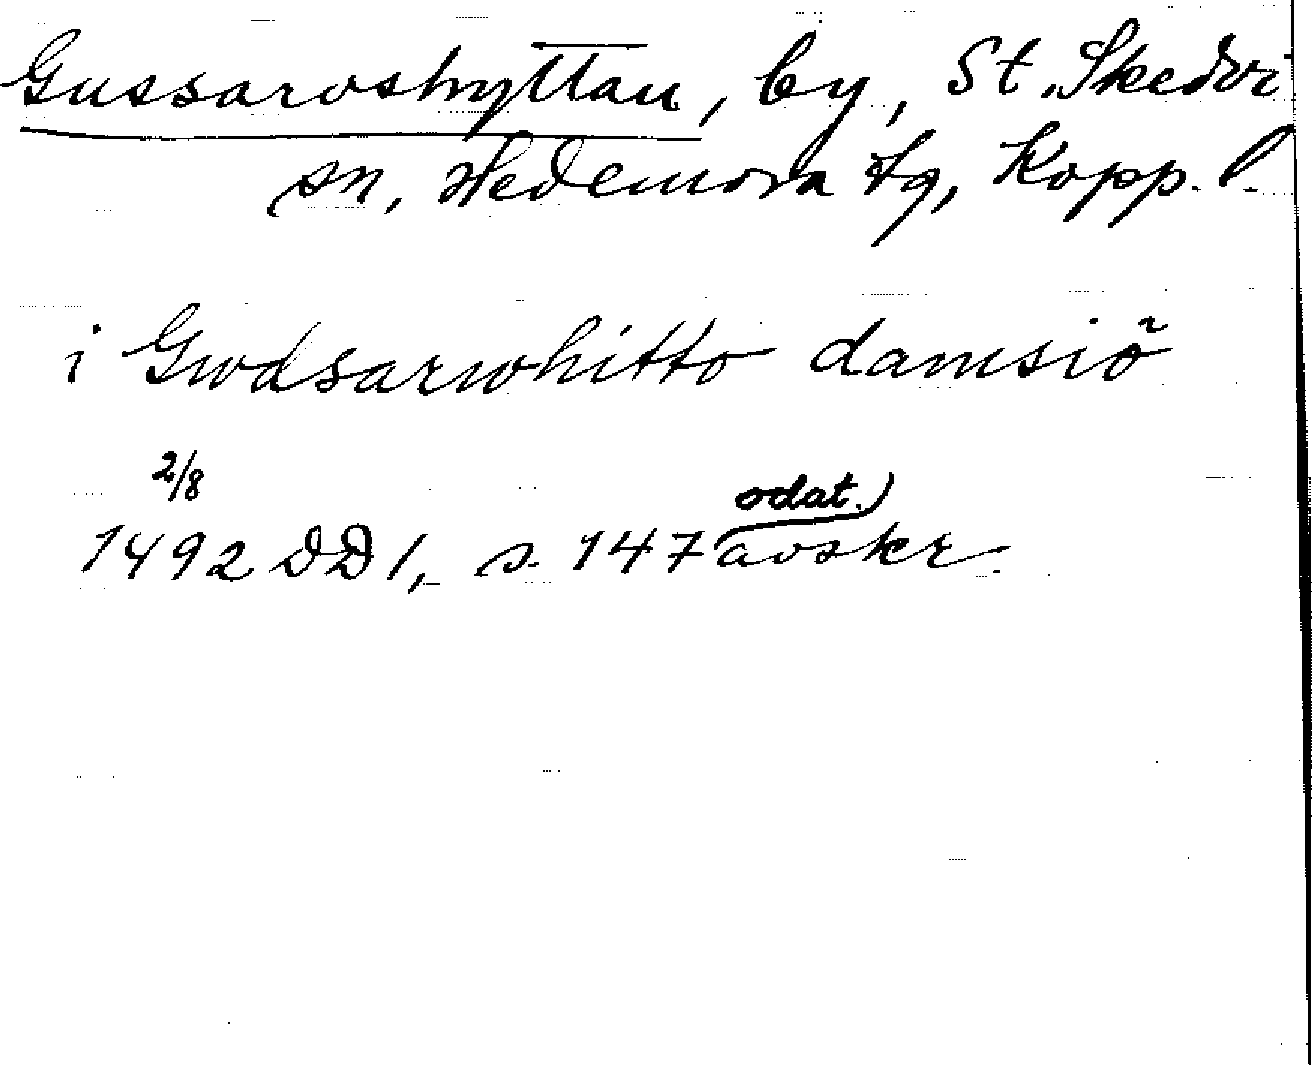 Gussarvshyttan, by, St. Skedvi
sn, Hedemora tg, Kopp. l.
i Gwdsarwhitto damsiö
2/8
1492 DD 1, s. 147 (odat.) avskr.